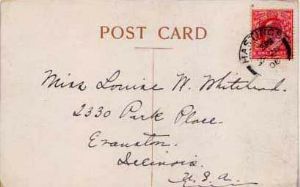 POST CARD
HASTINGS
Miss Louise W. Whitehead.
2330 Park Place.
Evanston
Illinois.
U.S.A.